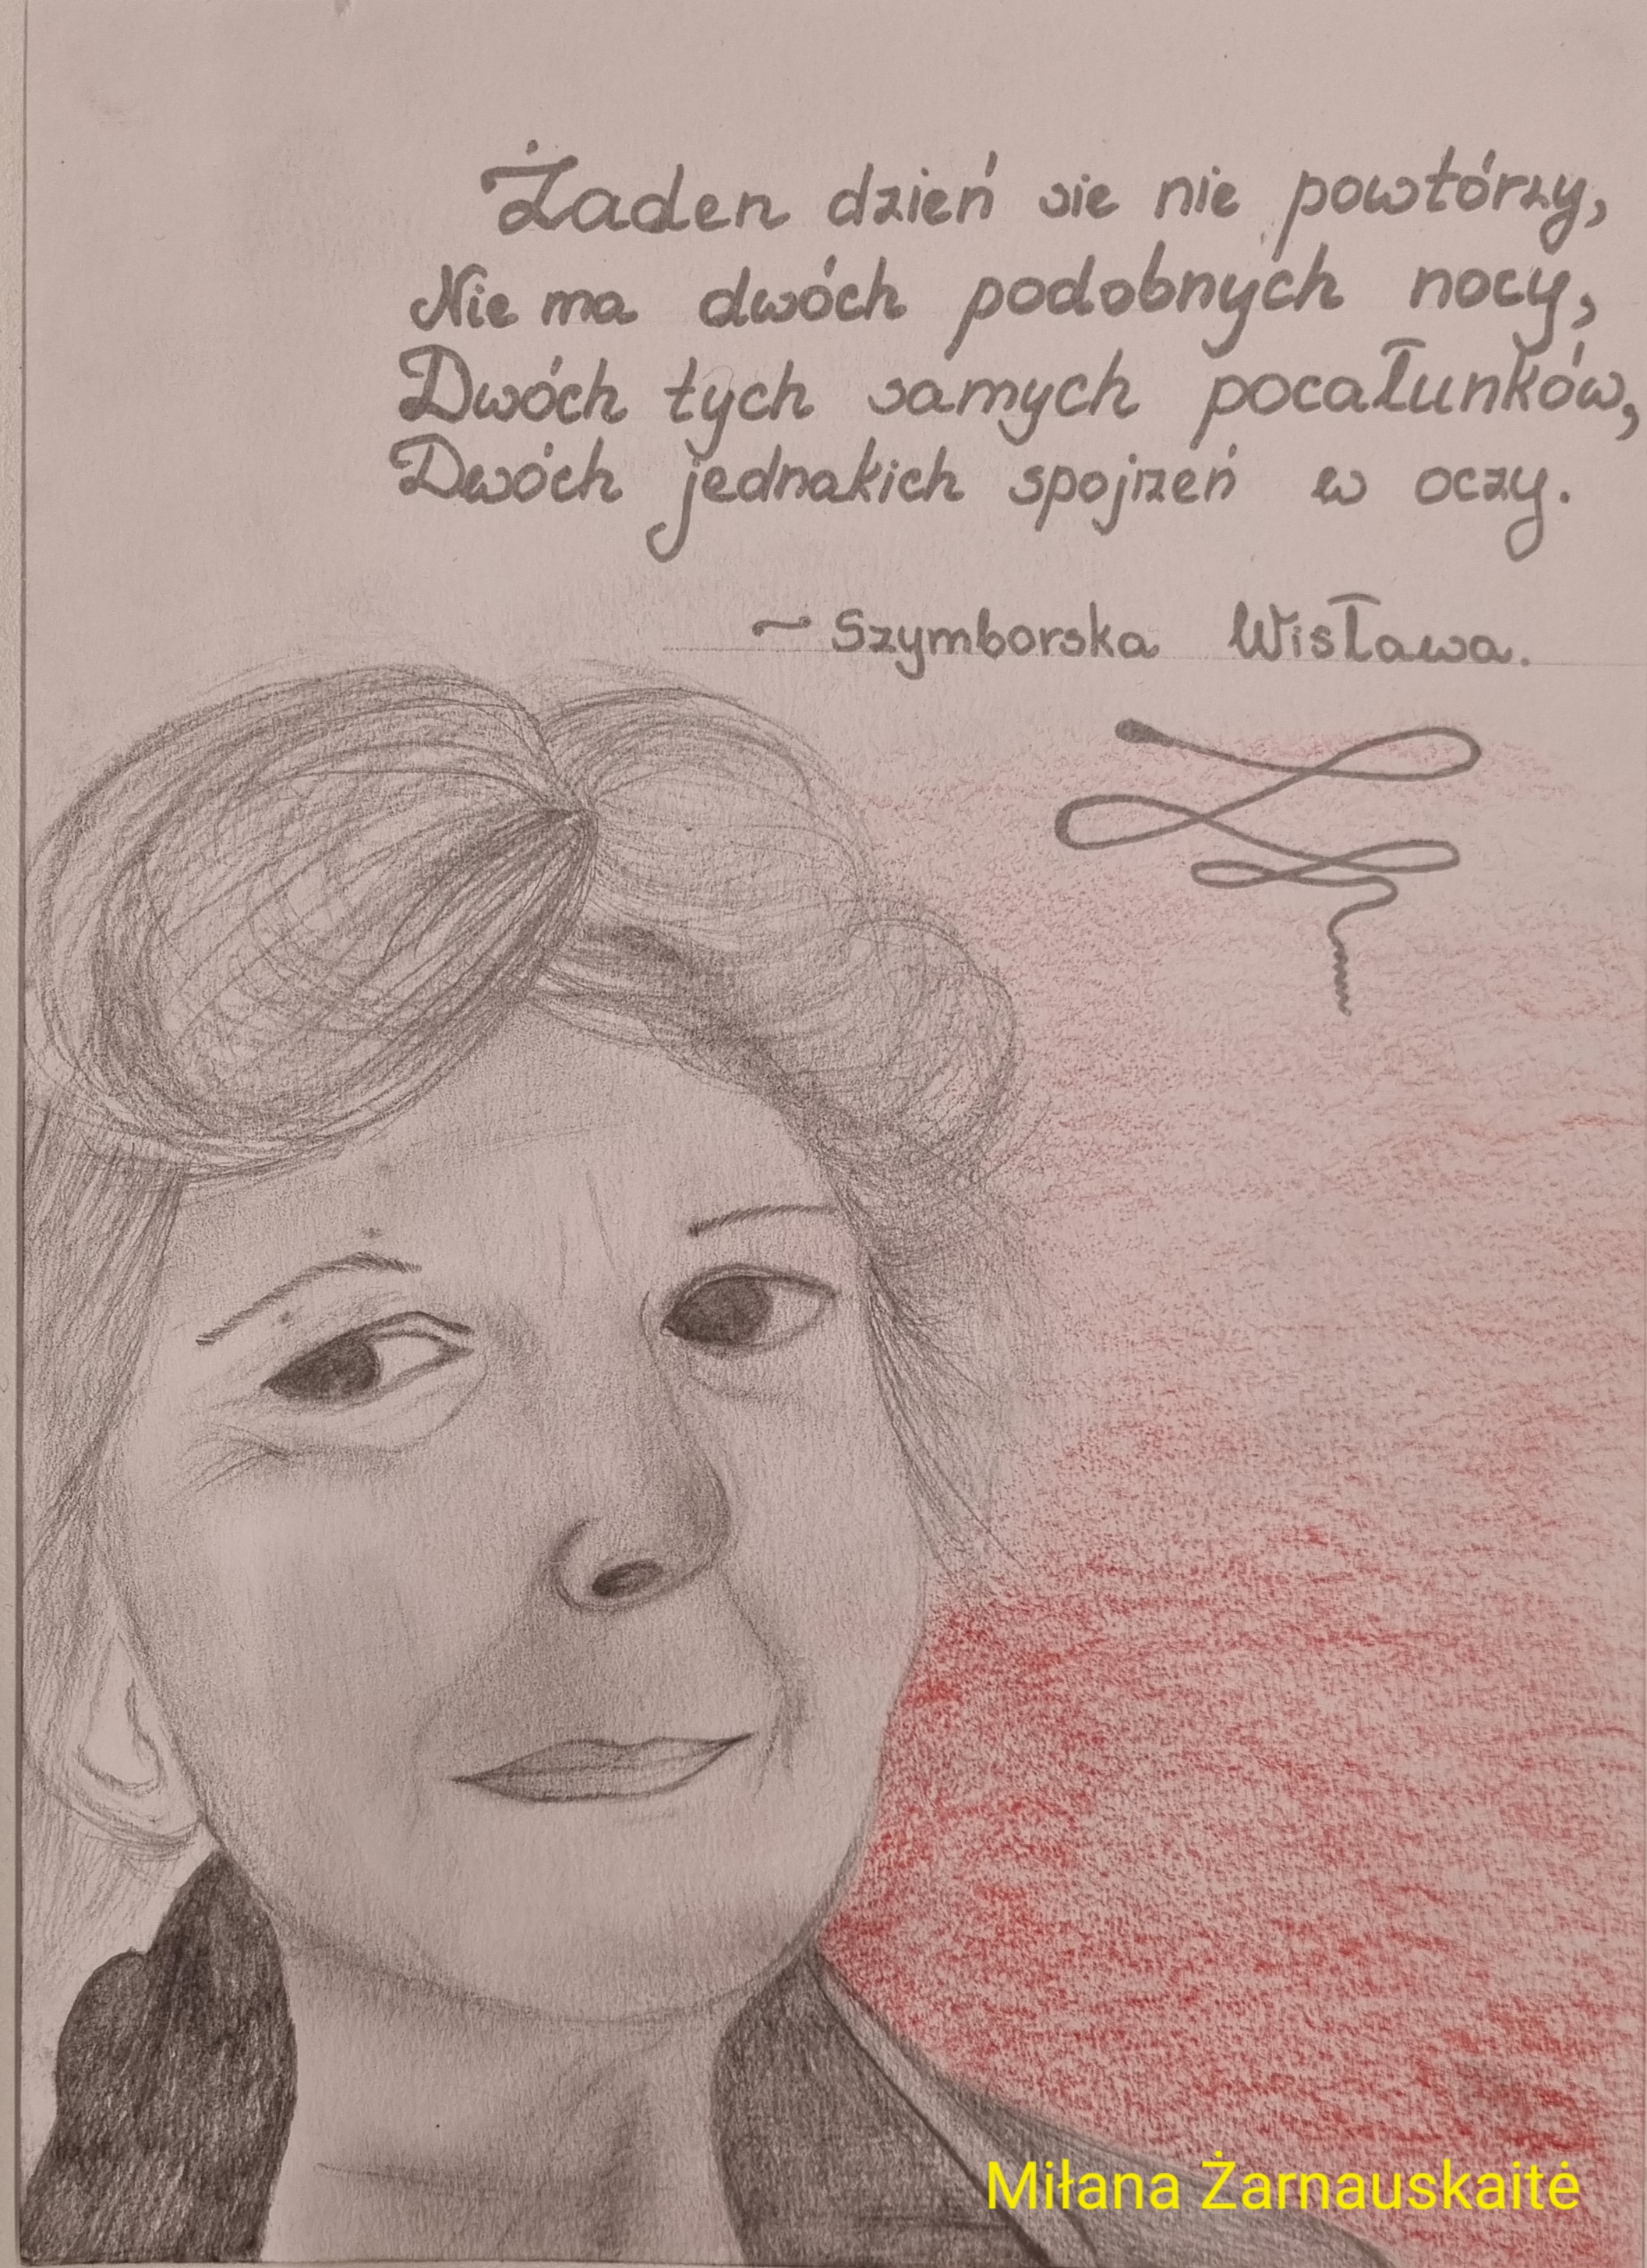 Żaden dzień sie nie powtórzy,
Nie ma dwóch podobnych nocy,
Dwóch tych samych pocałunków,
Dwóch jednakich spojrzeń w oczy.
~ Szymborska Wisława.
Miłana Żarnauskaitė